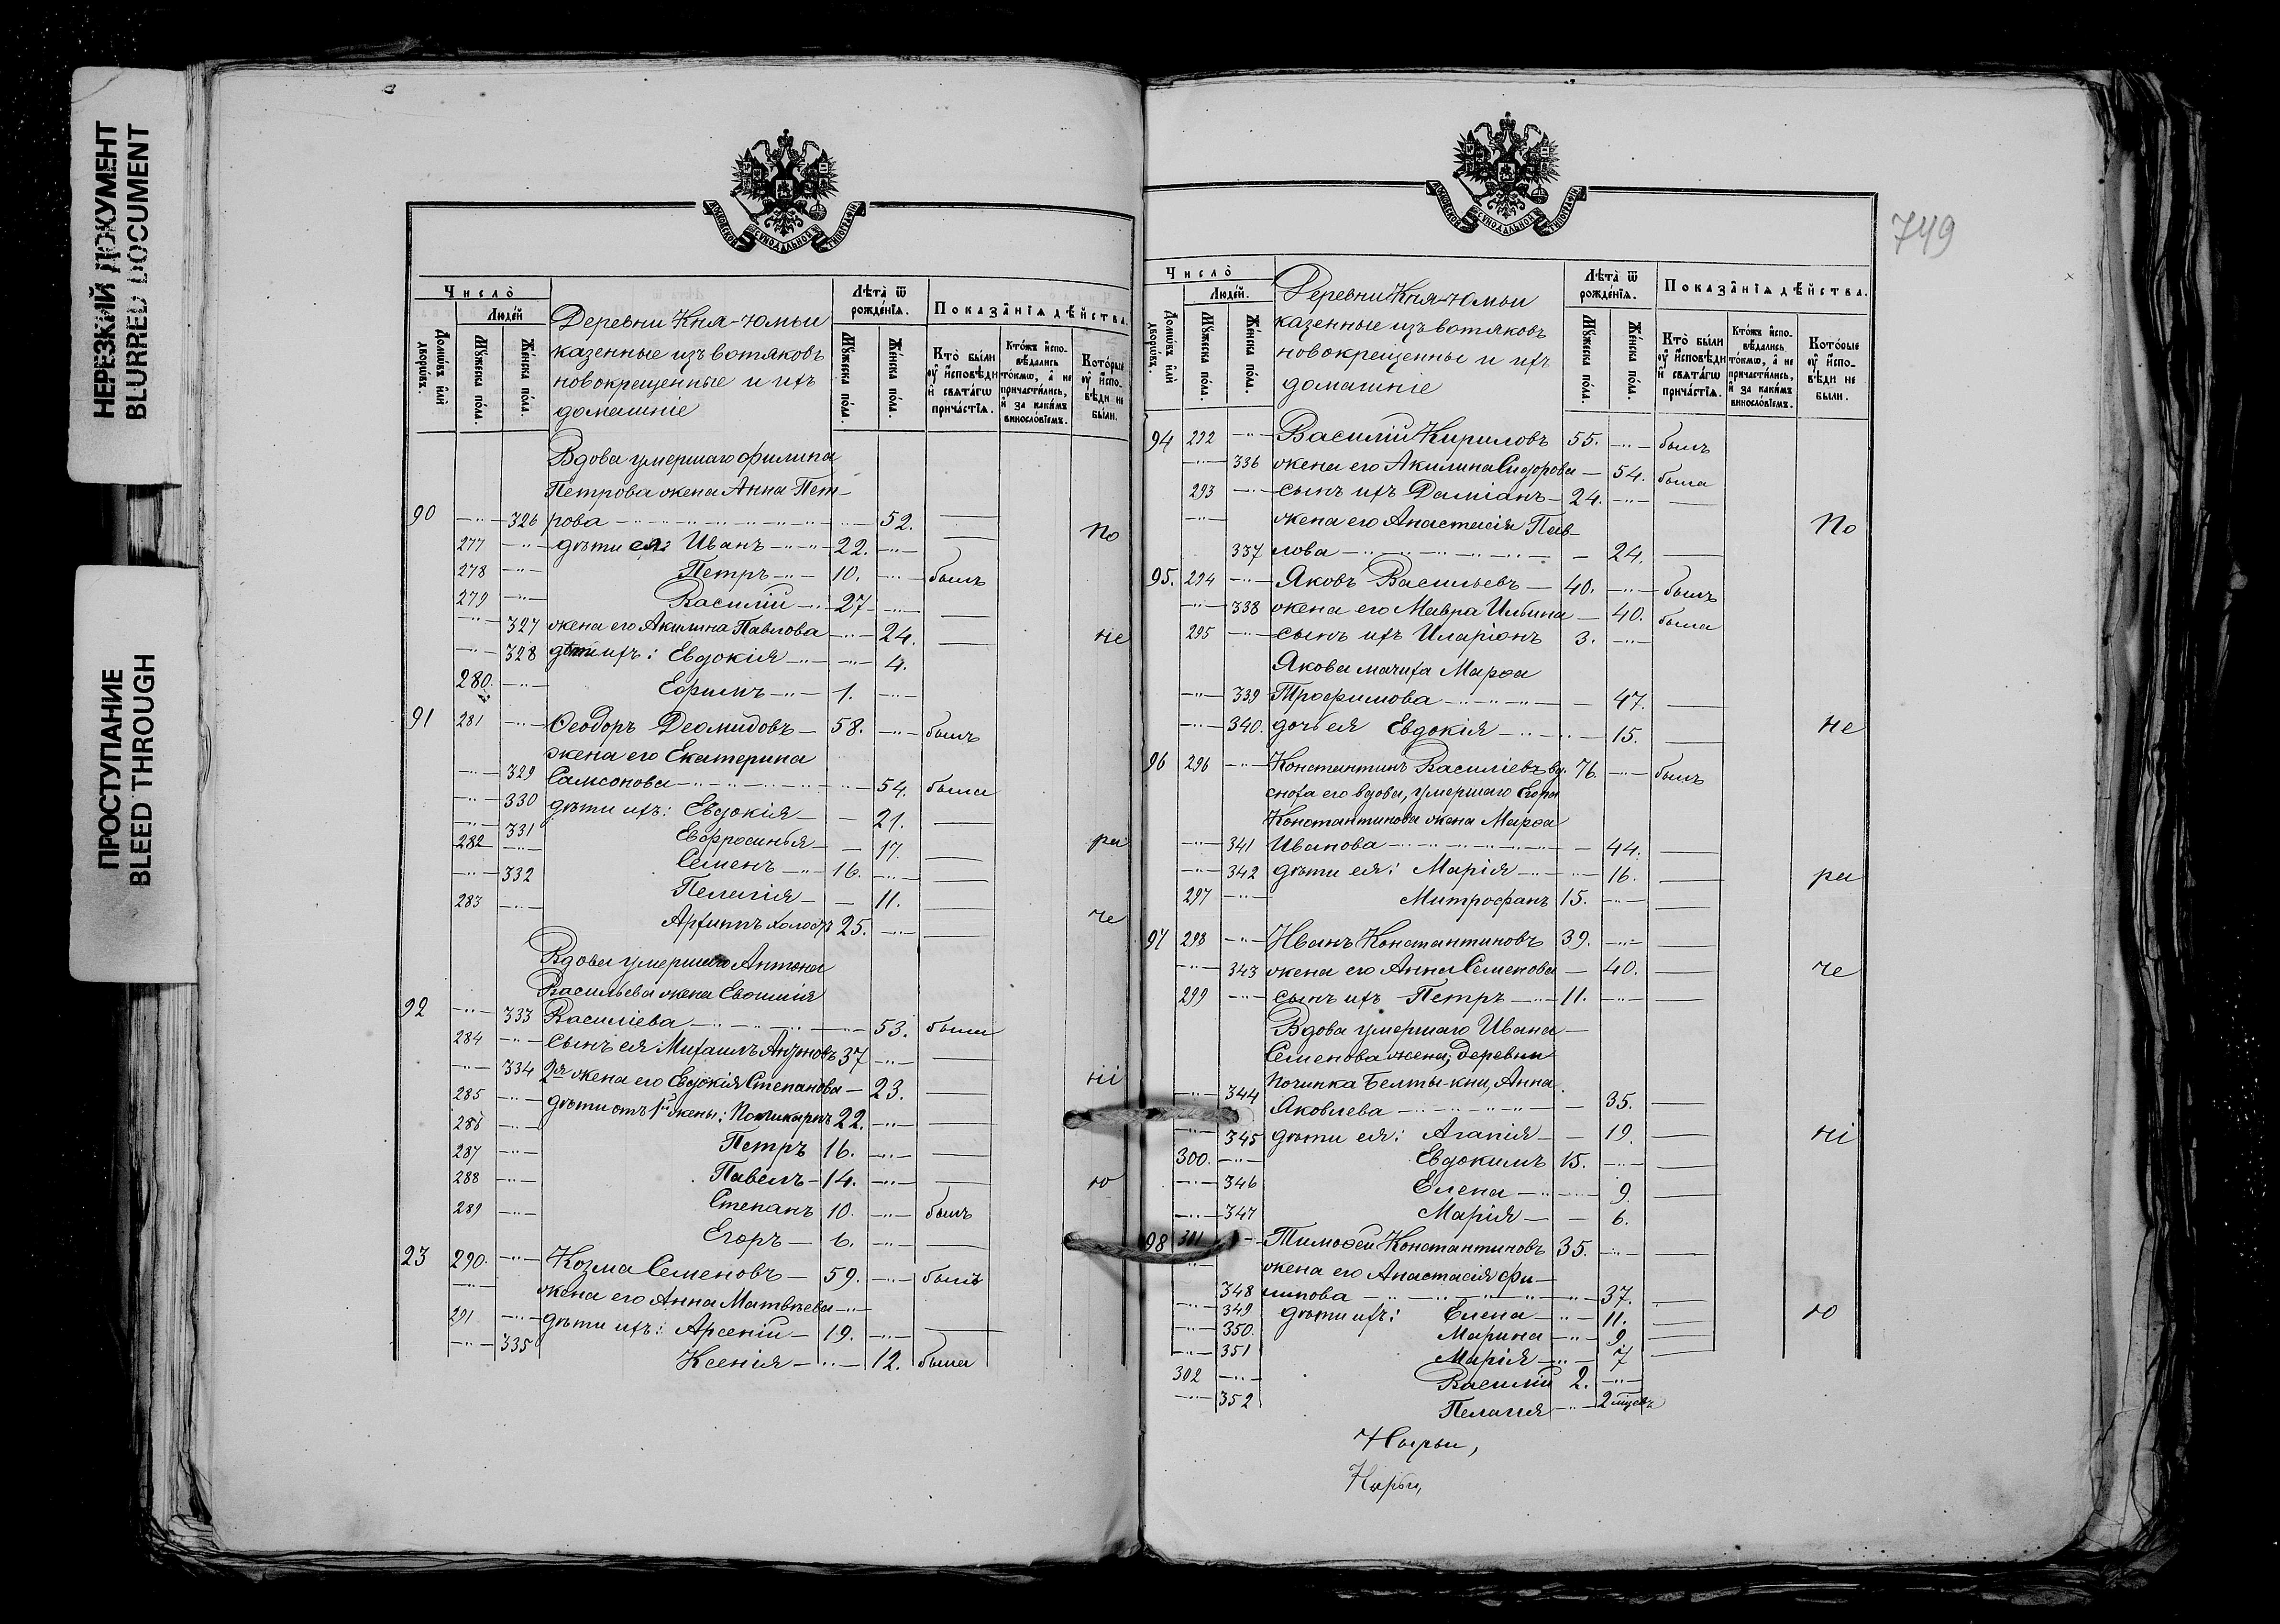 НЕРЕЗКИЙ ДОКУМЕНТ
BLURRED DOCUMENT
ПРОСТУПАНИЕ
BLEED THROUGH
МОСКОВСКОЙ СѴНОДАЛЬНОЙ ТИПОГРАФІИ
Число̀
Людей
Домѡвъ и҆лѝ дворѡвъ.
Мꙋжеска пола.
Женска пола.
Деревни Кня-Юмьи
казенные изъ вотяковъ
новокрещенные и ихъ
домашніе
Лѣта̀ ѿ рожденїѧ.
Мꙋжеска пола.
Женска пола.
Показанїѧ дѣйства.
Кто̀ были оу҆ и҆сповѣди и҆ свѧтагѡ причастїѧ.
Кто́жъ и҆сповѣдались то́кмѡ, а҆ не причастились, и҆ за какимъ винословїемъ.
Которые оу҆ и҆сповѣди не были.
Вдова умершаго Филипа
Петрова жена Анна Пет-
90 —..— 326 рова —..— 52. —
По
277 —..— дѣти ея: Иванъ —..— 22. —..— —
278 —..— Петръ —..— 10. —..— былъ
279 —..— Василій —..— 27 —..— —
—..— 327 жена его Акилина Павлова —..— 24. —
не
—..— 328 дѣти ихъ: Евдокія —..— 4.
280. —..— Ефимъ —..— 1. —..—
91 281 —..— Ѳеодоръ Деомидовъ — 58. —..— былъ
жена его Екатерина
—..— 329 Самсонова —..— 54. была
—..— 330 дѣти ихъ: Евдокія — — 21. —
—..— 331 Евфросинья — — 17. —
ра
282 —..— Семенъ —..— 16. —..— —
—..— 332 Пелагія — — 11. —
283 —..— Архипъ холостъ 25. —..— —
че
Вдова умершаго Антона
Васильева жена Евфимія
92 —..— 333 Василіева —..— 53. была
284 —..— сынъ ея Михаилъ Антоновъ 37 —..— —
—..— 334 2я жена его Евдокія Степанова — 23. —
ні
285 —..— дѣти отъ 1й жены: Поликарпъ 22. —..— —
286 —..— Петръ 16. —..— —
287 —..— Павелъ — 14. —..— —
ю
288 —..— Степанъ 10. —..— былъ
289 —..— Егоръ — 6. —..— —
23 290. —..— Козма Семеновъ — 59. —..— былъ
—..— жена его Анна Матвѣева —..—
291 —..— дѣти ихъ: Арсеній — 19. —..— —
—..— 335 Ксенія —..— 12. была
749
МОСКОВСКОЙ СѴНОДАЛЬНОЙ ТИПОГРАФІИ
Число̀
Людей.
Домѡвъ и҆лѝ дворѡвъ.
Мꙋжеска пола.
Женска пола.
Деревни Кня-Юмьи
казенные изъ вотяковъ
новокрещенны и ихъ
домашніе
Лѣта̀ ѿ рожденїѧ.
Мꙋжеска пола.
Женска пола.
Показанїѧ дѣйства.
Кто̀ были оу҆ и҆сповѣди и҆ свѧтагѡ причастїѧ.
Кто́жъ и҆сповѣдались то́кмѡ, а҆ не причастились, и҆ за какимъ винословїемъ.
Которые оу҆ и҆сповѣди не были.
94 292 —..— Василій Кириловъ 55. —..— былъ
—..— 336 жена его Акилина Сидорова — 54. была
293 —..— сынъ ихъ Даміанъ — 24. —..— —
—..— жена его Анастасія Пав-
По
337 лова —..— 24. —
95. 294 —..— Яковъ Васильевъ — 40. —..— былъ
—..— 338 жена его Мавра Ильина — 40. была
295 —..— сынъ ихъ Иларіонъ 3. —..—
Якова мачиха Марѳа
—..— 339 Трофимова —..— 47. —
—..— 340. дочь ея Евдокія —..— 15. —
не
96 296 —..— Константинъ Василіевъ вд. 76. —..— былъ
сноха его вдова, умершаго Егора
Константинова жена Марѳа
—..— 341 Иванова —..— 44. —
—..— 342 дѣти ея: Марія —..— 16. —
ра
297 —..— Митрофанъ 15. —..— —
97 298 —..— Иванъ Константиновъ 39. —..— —
—..— 343 жена его Анна Семенова — 40. —
че
299 —..— сынъ ихъ Петръ —..— 11. —..— —
Вдова умершаго Ивана —
Семенова жена, деревни
Починка Белты-кни, Анна
—..— 344 Яковлева —..— 35. —
—..— 345 дѣти ея: Агапія — — 19. —
ні
300. —..— Евдокимъ 15. —..— —
—..— 346 Елена —..— 9. —
—..— 347 Марія — — 6.
98 301 —..— Тимоѳей Константиновъ 35. —..— —
—..— жена его Анастасія Фи-
348 липова —..— 37. —
—..— 349 дѣти ихъ: Елена —..— 11. —
ю
—..— 350. Марина —..— 9. —
—..— 351 Марія —..— 7 —
302 —..— Василій 2. —..—
—..— 352 Пелагія —..— 2 мцевъ
Нырьи,
Нырьи,